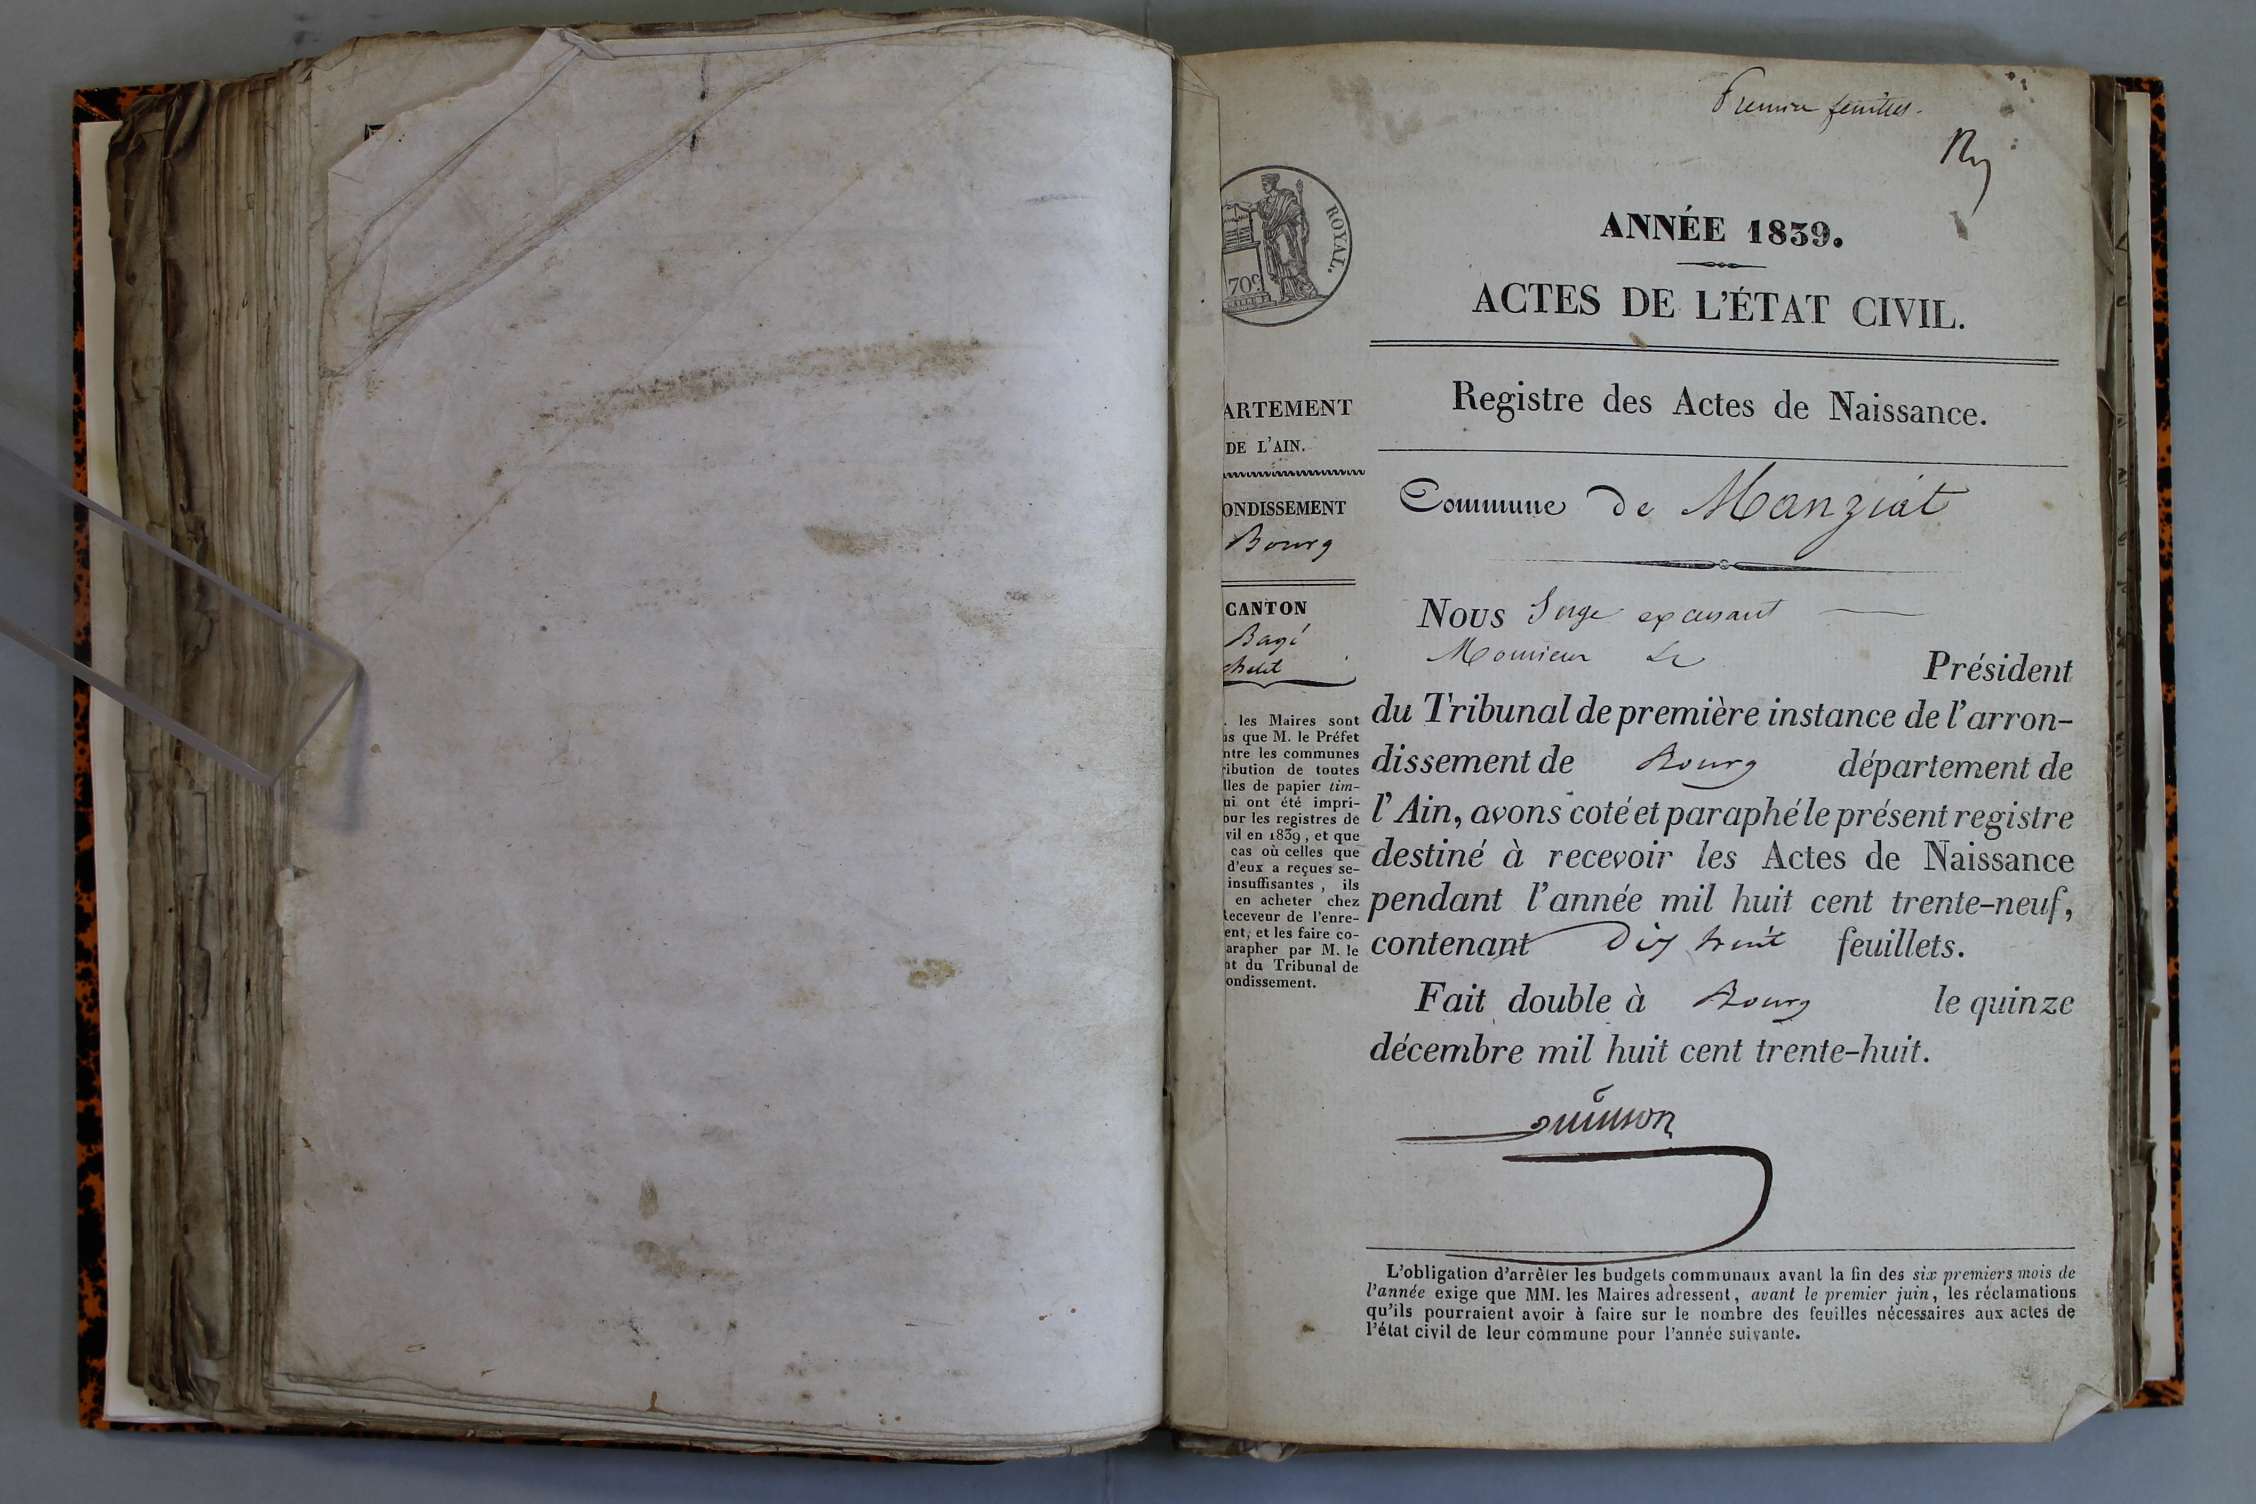 Premier feuillet.
ROYAL.
70c.
ANNÉE 1839.
ACTES DE L'ÉTAT CIVIL.
Registre des Actes de Naissance.
Commune de Manziat
ARTEMENT
DE L'AIN.
ONDISSEMENT
Bourg
CANTON
Bagé
chatel
. les Maires sont
us que M. le Préfet
ntre les communes
ribution de toutes
lles de papier tim-
ui ont été impri-
our les registres de
vil en 1839, et que
cas où celles que
d'eux a reçues se-
insuffisantes, ils
en acheter chez
Receveur de l'enre-
ent, et les faire co-
arapher par M. le
nt du Tribunal de
ondissement.
Nous Juge excusant
Monsieur Le Président
du Tribunal de première instance de l'arron-
dissement de Bourg département de
l'Ain, avons coté et paraphé le présent registre
destiné à recevoir les Actes de Naissance
pendant l'année mil huit cent trente-neuf,
contenant Dix huit feuillets.
Fait double à Bourg le quinze
décembre mil huit cent trente-huit.
L'obligation d'arrêter les budgets communaux avant la fin des six premiers mois de
l'année exige que MM. les Maires adressent, avant le premier juin, les réclamations
qu'ils pourraient avoir à faire sur le nombre des feuilles nécessaires aux actes de
l'état civil de leur commune pour l'année suivante.